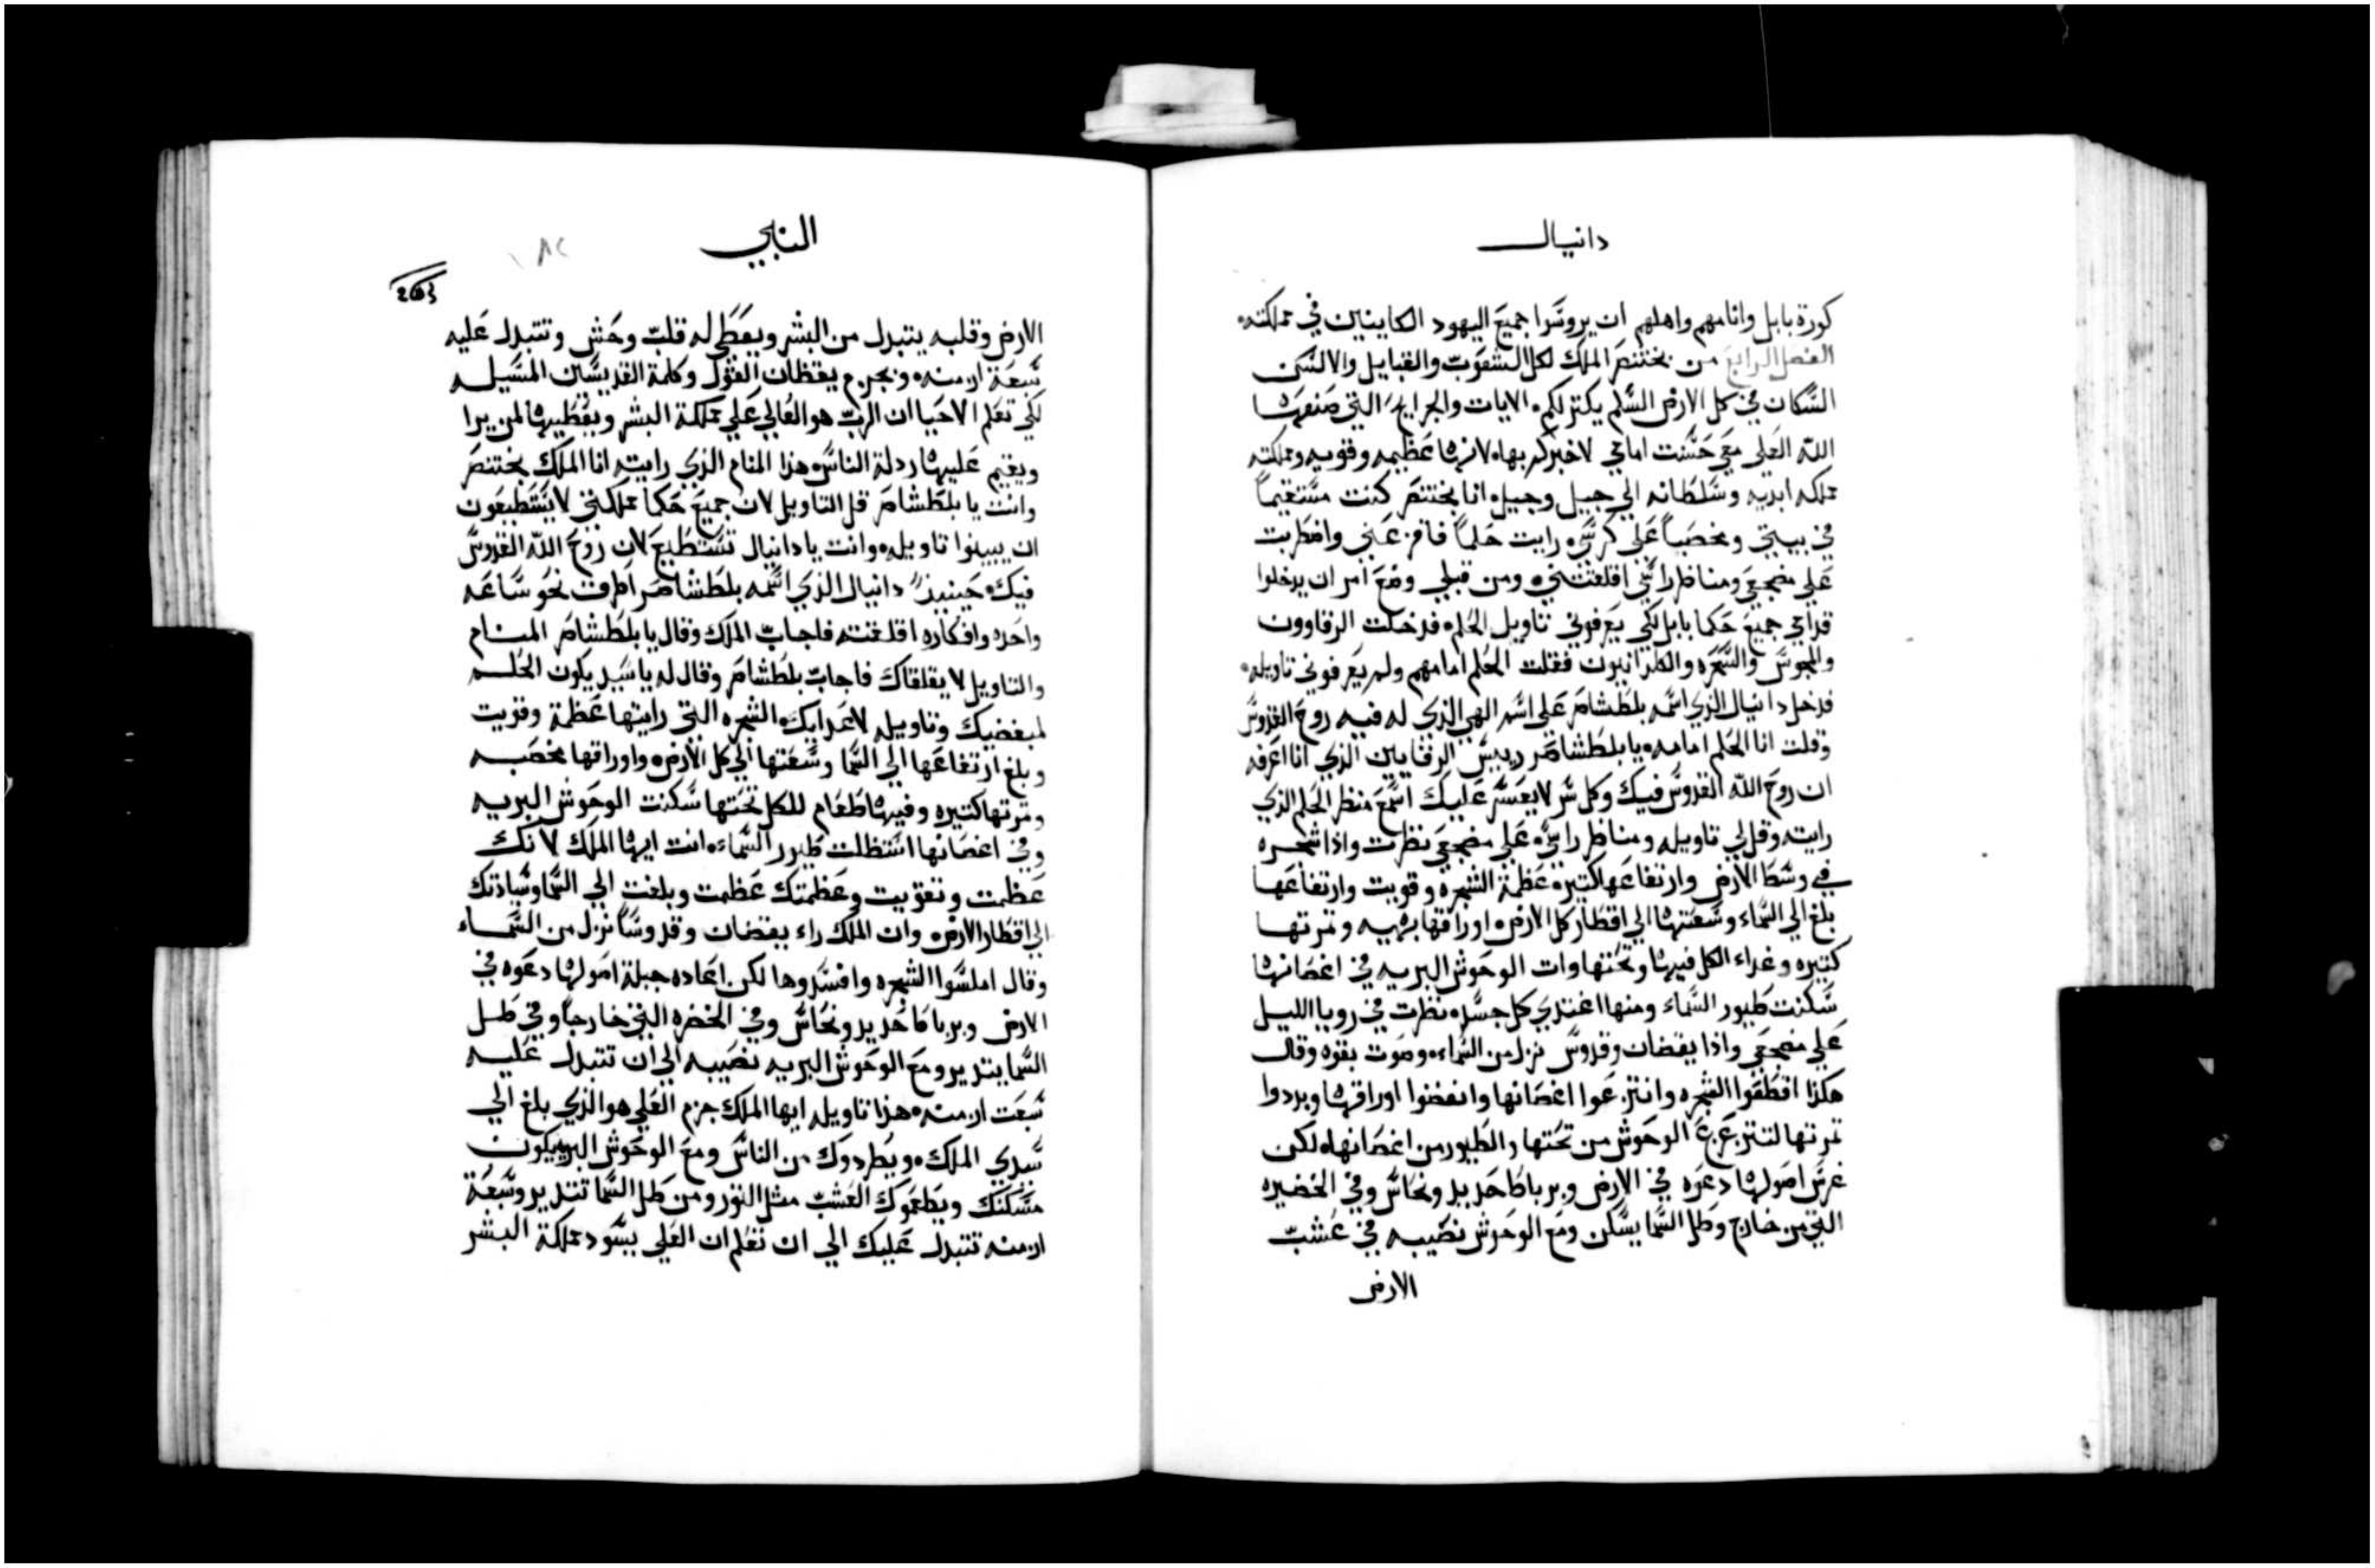 دانيال
كورة بابل واقامهم واهلهم ان يروسوا جميع اليهود الكاينين في مملكته
الفصل الرابع من بختنصر الملك لكل الشعوب والقبايل والالسن
السكان في كل الارض السلم يكتر لكم الايات والجرايح التي صنعها
الله العلي معي حسنت امامي لاخبركم بها لانها عظيمه وقويه ومملكته
مملكه ابديه وسلطانه الي جيل وجيل انا بختنصر كنت مستقيما
في بيتي ومخصبا علي كرسي رايت حلما فافزعني واضطربت
علي مضجعي ومناظر راسي اقلقتني ومن قبلي وضع امر ان يدخلوا
قدامي جميع حكما بابل لكي يعرفوني تاويل الحلم فدخلت الرقاوون
والمجوس والسحره والكلدانيون فقلت الحلم امامهم ولم يعرفوني تاويله
فدخل دانيال الذي اسمه بلطشاصر علي اسم الهي الذي له فيه روح القدوس
وقلت انا الحلم امامه يا بلطشاصر رييس الرقايين الذي انا اعرفه
ان روح الله القدوس فيك وكل سر لا يعسر عليك اسمع منظر الحلم الذي
رايته وقل لي تاويله ومناظر راسي علي مضجعي نظرت واذا شجره
في وسط الارض وارتفاعها كتيره عظمة الشجره وقويت وارتفاعها
بلغ الي السماء وسعتها الي اقطار كل الارض اوراقها بهيه وتمرتها
كتيره وغداء الكل فيها وتحتها وات الوحوش البريه في اغصانها
سكنت طيور السماء ومنها اغتدي كل جسد نظرت في رويا الليل
علي مضجعي واذا يقضان وقدوس نزل من السماء وصوت بقوه وقال
هكذا اقطعوا الشجره وانتزعوا اغصانها وانفضوا اوراقها وبددوا
تمرتها لتتزعزع الوحوش من تحتها والطيور من اغصانها لكن
غرس اصولها دعوه في الارض وبرباط حديد ونحاس وفي الخضيره
التي من خارج وطل السما يسكن ومع الوحوش نصيبه في عشب
الارض
النبي
203
الارض وقلبه يتبدل من البشر ويعطي له قلب وحش وتتبدل عليه
سبعة ازمنه وبجزم يقظان القول وكلمة القديسين المسيله
لكي تعلم الاحيا ان الرب هو العالي علي مملكة البشر ويعطيها لمن يرا
ويقيم عليها ردلة الناس هذا المنام الذي رايته انا الملك بختنصر
وانت يا بلطشاصر قل التاويل لان جميع حكما مملكتي لا يستطيعون
ان يبينوا تاويله وانت يا دانيال تستطيع لان روح الله القدوس
فيك حينيذ دانيال الذي اسمه بلطشاصر اطرق نحو ساعه
واحده وافكاره اقلقته فاجاب الملك وقال يا بلطشاصر المنام
والتاويل لا يقلقاك فاجاب بلطشاصر وقال له يا سيد يكون الحلم
لمبغضيك وتاويله لاعدايك الشجره التي رايتها عظمة وقويت
وبلغ ارتفاعها الي السما وسعتها الي كل الارض واوراقها مخصبه
وتمرتها كتيره وفيها طعام للكل تحتها سكنت الوحوش البريه
وفي اغصانها استظلت طيور السماء انت ايها الملك لانك
عظمت وتقويت وعظمتك عظمت وبلغت الي السما وسيادتك
الي اقطار الارض وان الملك راء يقضان وقدوسا نزل من السماء
وقال املسوا الشجره وافسدوها لكن اعاده جبلة اصولها دعوه في
الارض وبرباط حديد ونحاس وفي الخضره التي خارجا وفي طل
السما يتدير ومع الوحوش البريه نصيبه الي ان تتبدل عليه
سبعت ازمنه هذا تاويله ايها الملك جزم العلي هو الذي بلغ الي
سيدي الملك ويطردوك من الناس ومع الوحوش البريه يكون
مسكنك ويطعموك العشب مثل التور ومن طل السما تتدير وسبعة
ازمنه تتبدل عليك الي ان تعلم ان العلي يسود مملكة البشر